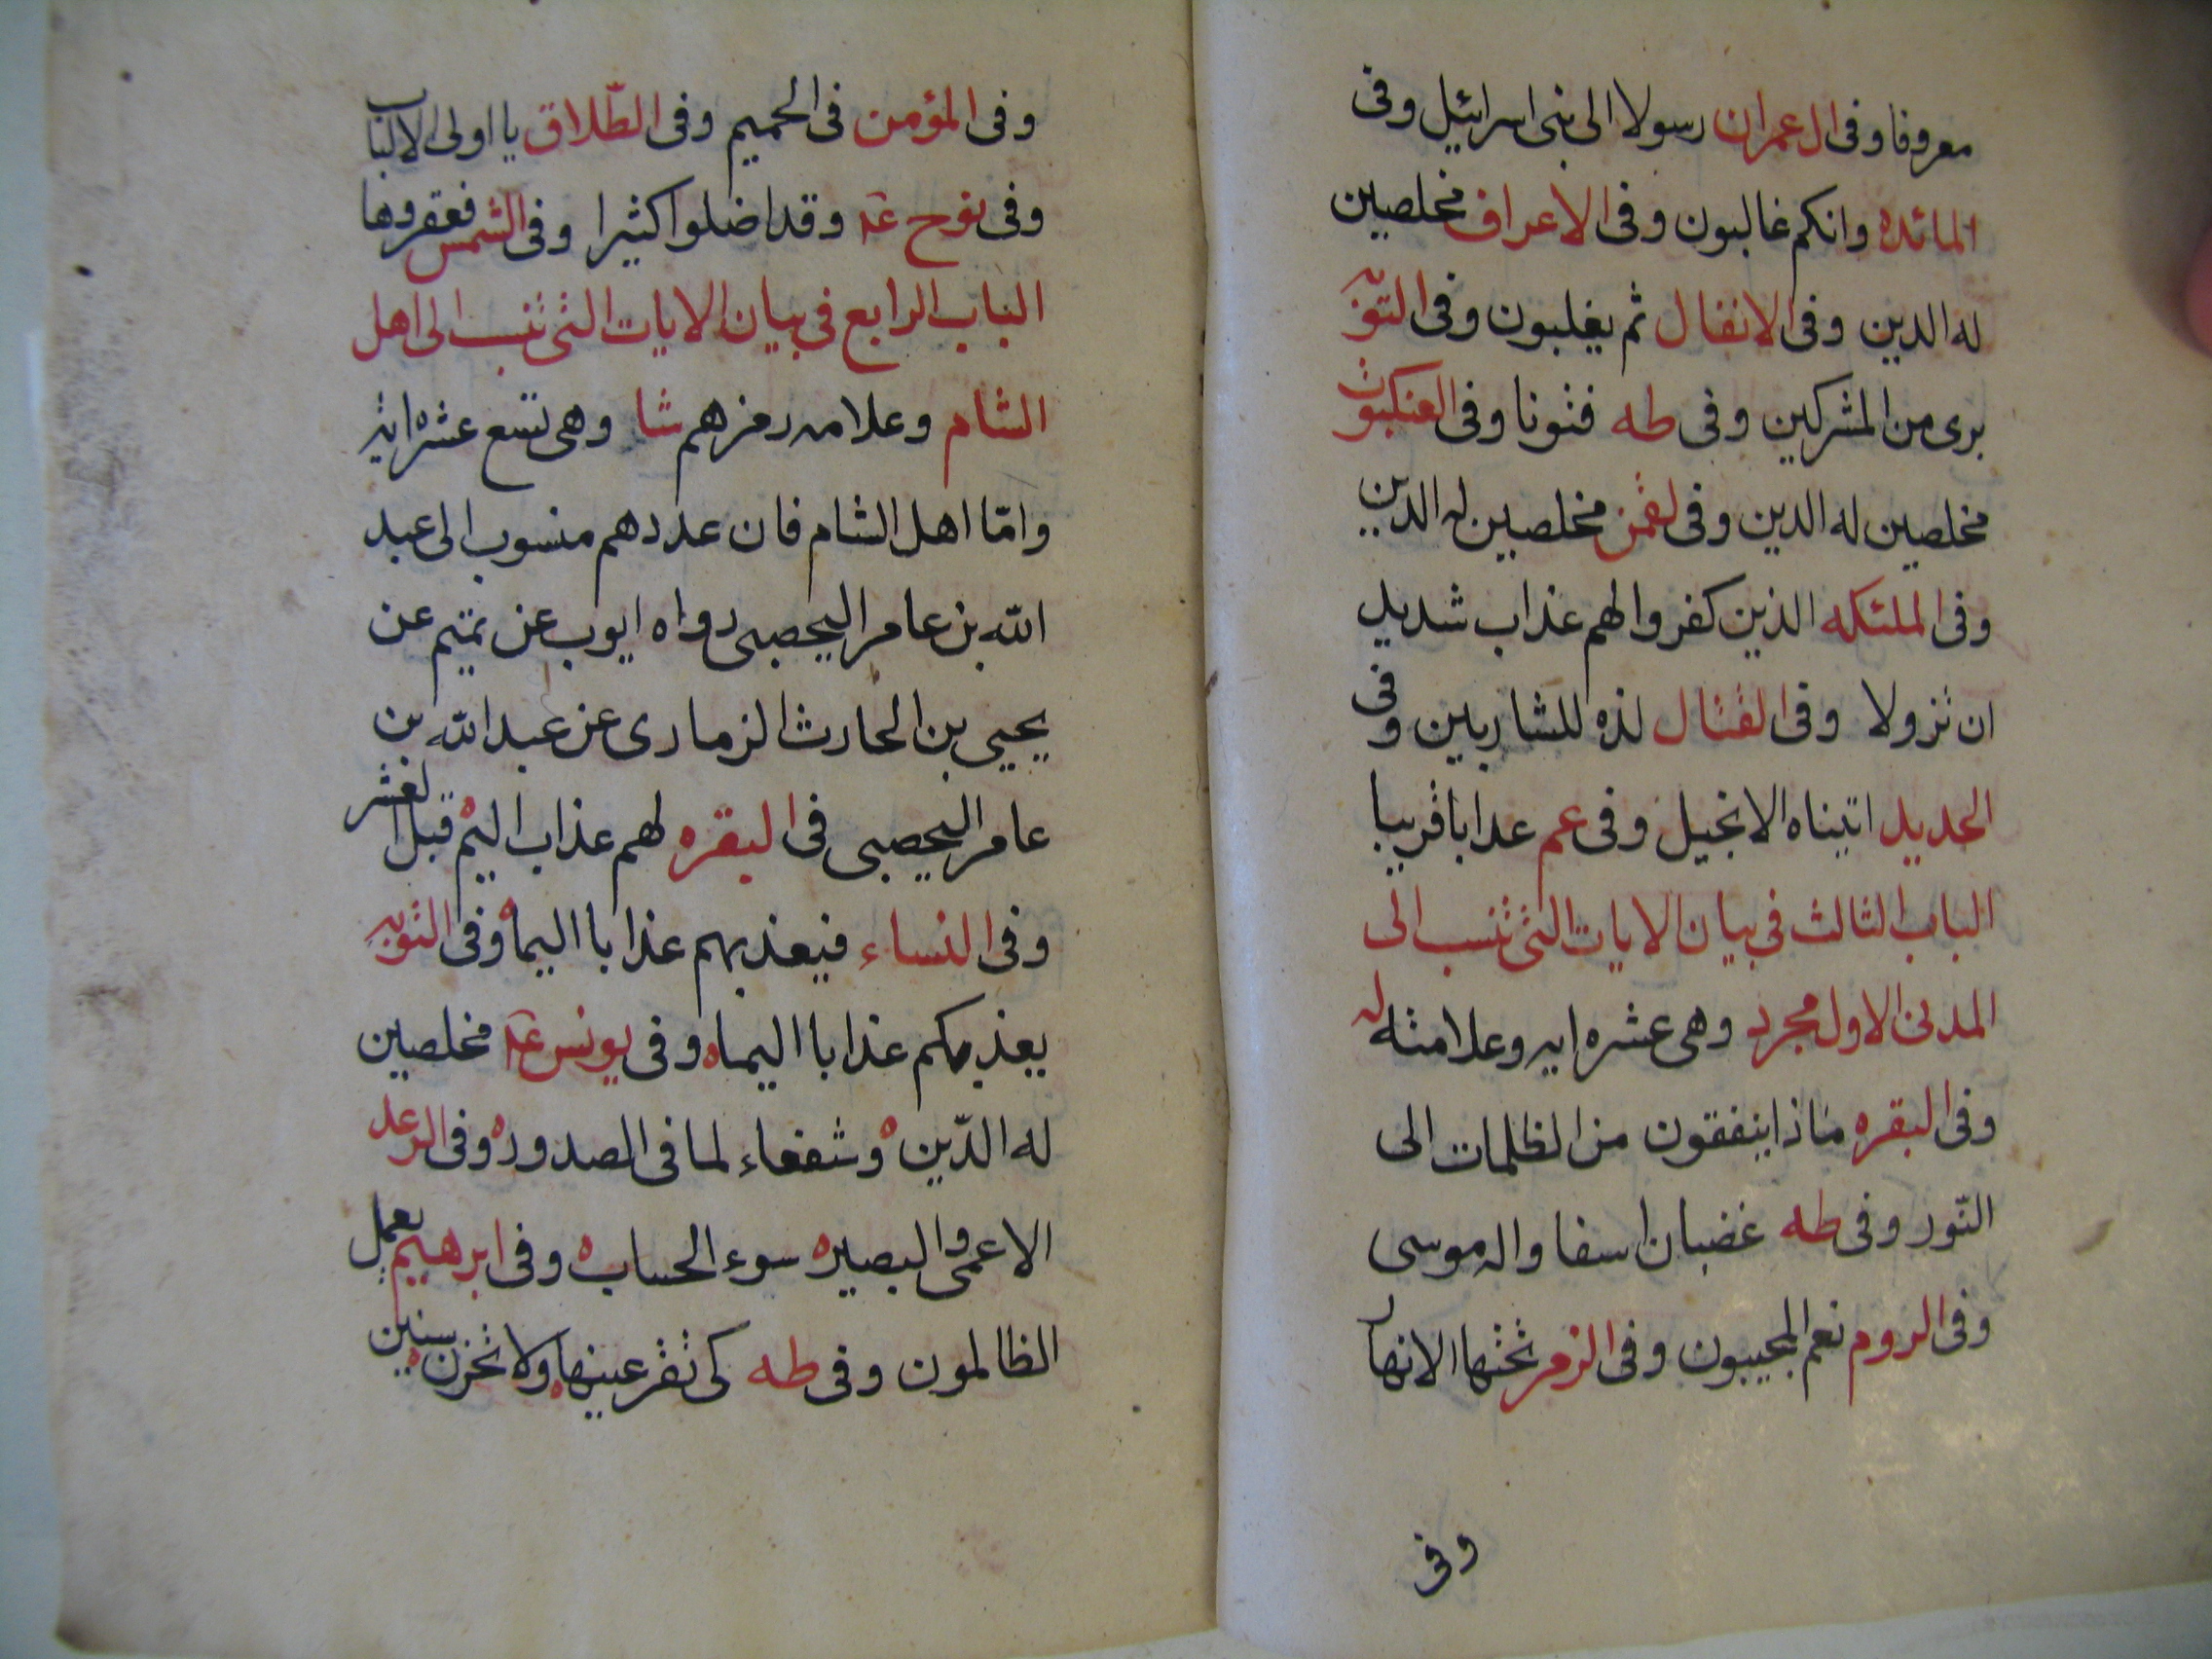 معروفا وفى ال عمران رسولا الى بنى اسرائيل وفى
المائده وانكم غالبون وفى الاعراف مخلصين
له الدين وفى الانفال ثم يغلبون وفى التوبه
برى من المشركين وفى طه فتونا وفى العنكبوت
مخلصين له الدين وفى لقمن مخلصين له الدين
وفى الملئكه الذين كفروا لهم عذاب شديد
ان تزولا وفى القتال لذه للشاربين وفى
الحديد اتيناه الانجيل وفى عم عذابا قريبا
الباب الثالث فى بيان الايات التى تنسب الى
المدنى الاول مجرد وهى عشره ايه وعلامته له
وفى البقره ماذا ينفقون من الظلمات الى
النّور وفى طه غضبان اسفا واله موسى
وفى الروم نعم المجيبون وفى الزمر تحتها الانهار
وفى
وفى المؤمن فى الحميم وفى الطّلاق يا اولى الالباب
وفى نوح عه وقد اضلوا كثيرا وفى الشمس فعقروها
الباب الرابع فى بيان الايات التى تنسب الى اهل
الشام وعلامه رمزهم شا وهى تسع عشره ايه
وامّا اهل الشام فان عددهم منسوب الى عبد
الله بن عامر اليحصبى رواه ايوب عن تميم عن
يحيى بن الحارث الزمارى عن عبد الله بن
عامر اليحصبى فى البقره لهم عذاب اليم ه قبل العشر
وفى النساء فيعذبهم عذابا اليما ه وفى التوبه
يعذبكم عذابا اليما ه وفى يونس عه مخلصين
له الدّين ه وشفعاء لما فى الصدور ه وفى الرعد
الاعمى والبصير ه سوء الحساب ه وفى ابرهيم يعمل
الظالمون وفى طه كى تقر عينها ه ولا تحزن ه سنين